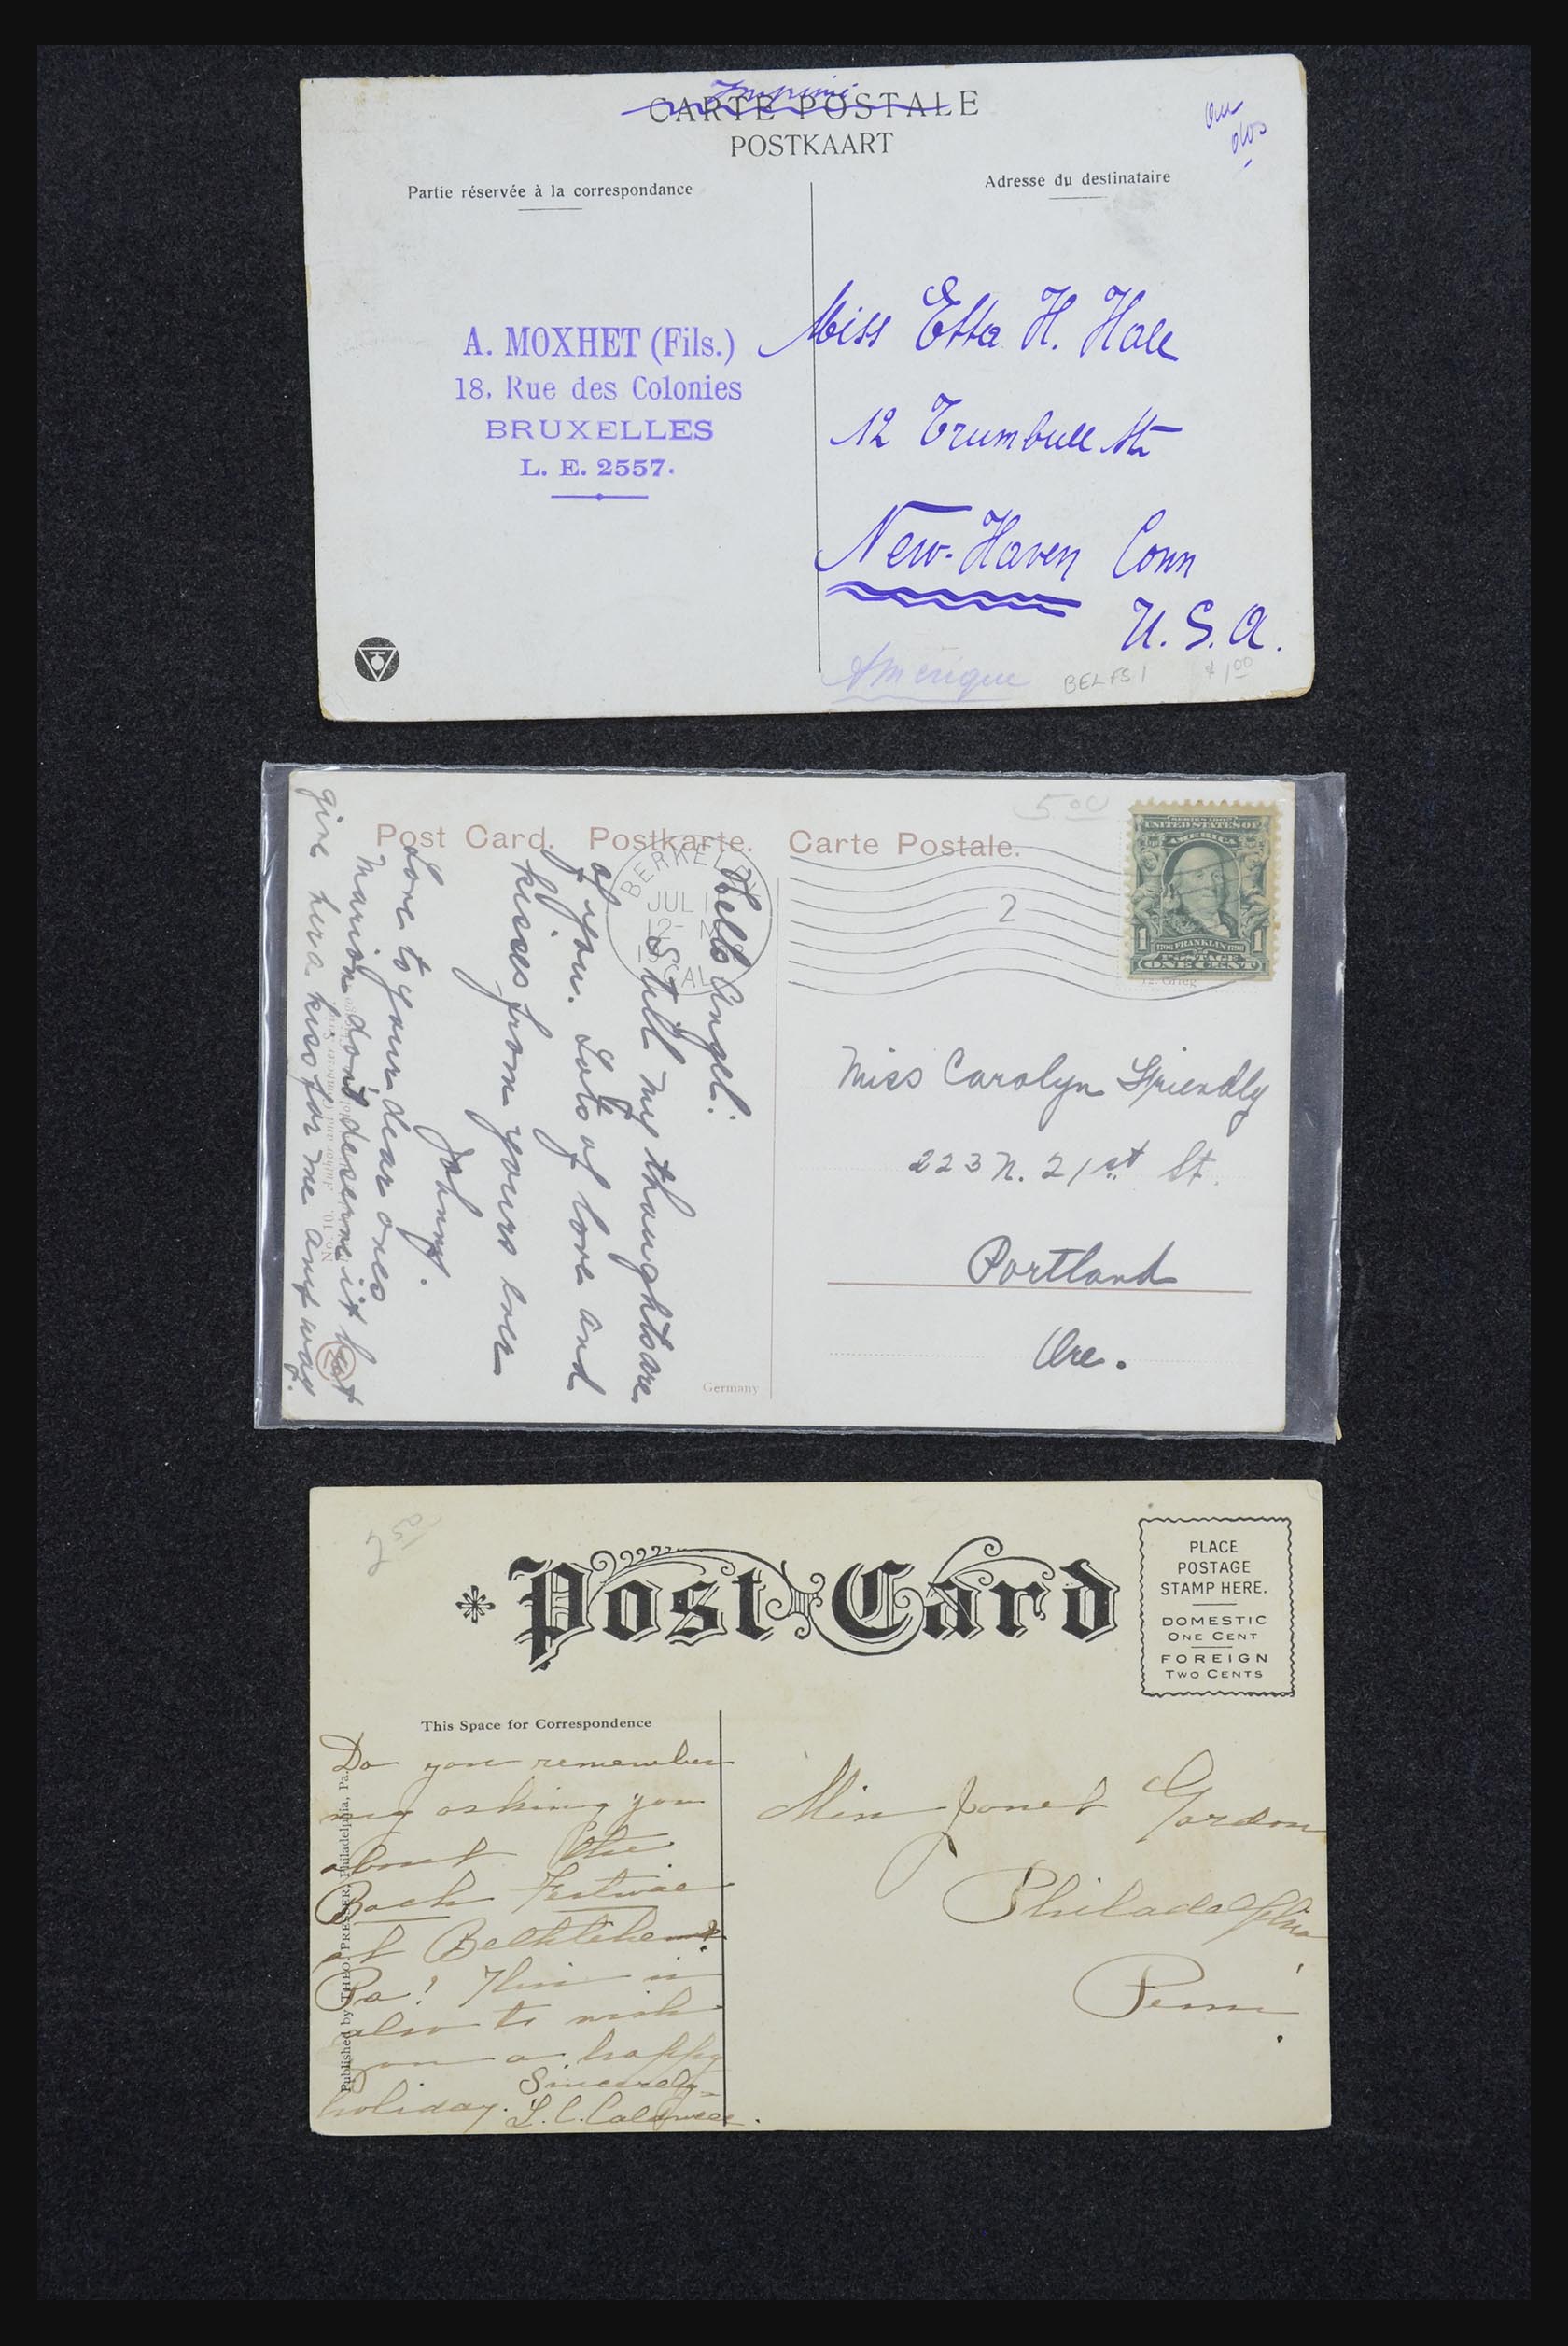 Imprimé
CARTE POSTALE
POSTKAART
au
dos
Partie réservée à la correspondance
Adresse du destinataire
A. MOXHET (Fils.)
18, Rue des Colonies
BRUXELLES
L. E. 2557.
Miss Etta H. Hale
12 Trumbull Str
New-Haven Conn
U. S. A.
Amérique
BEL FS 1
$1.00
5.00
Post Card. Postkarte. Carte Postale.
BERKELEY
JUL 1
12-
CAL
2
SERIES 1902
UNITED STATES OF
AMERICA
1706 FRANKLIN 1790
1 1
POSTAGE
ONE CENT
12. Grieg
Hello Angel.
Still my thoughts are
of you. Lots of love and
kisses from yours ever
Johnny.
Love to your dear ones
Marion don't deserve it but
give her a kiss for me any way.
No. 10.
Germany
Miss Carolyn Friendly
223 N. 21st St.
Portland
Ore.
2.50
Post Card
PLACE
POSTAGE
STAMP HERE.
DOMESTIC
ONE CENT
FOREIGN
TWO CENTS
This Space for Correspondence
Do you remember
my asking you
about the
Bach Festival
at Bethlehem
Pa? This is
also to wish
you a happy
holiday. Sincerely
L. C.
Published by THEO. PRESSER, Philadelphia, Pa.
Miss Janet Gordon
Philadelphia
Penn